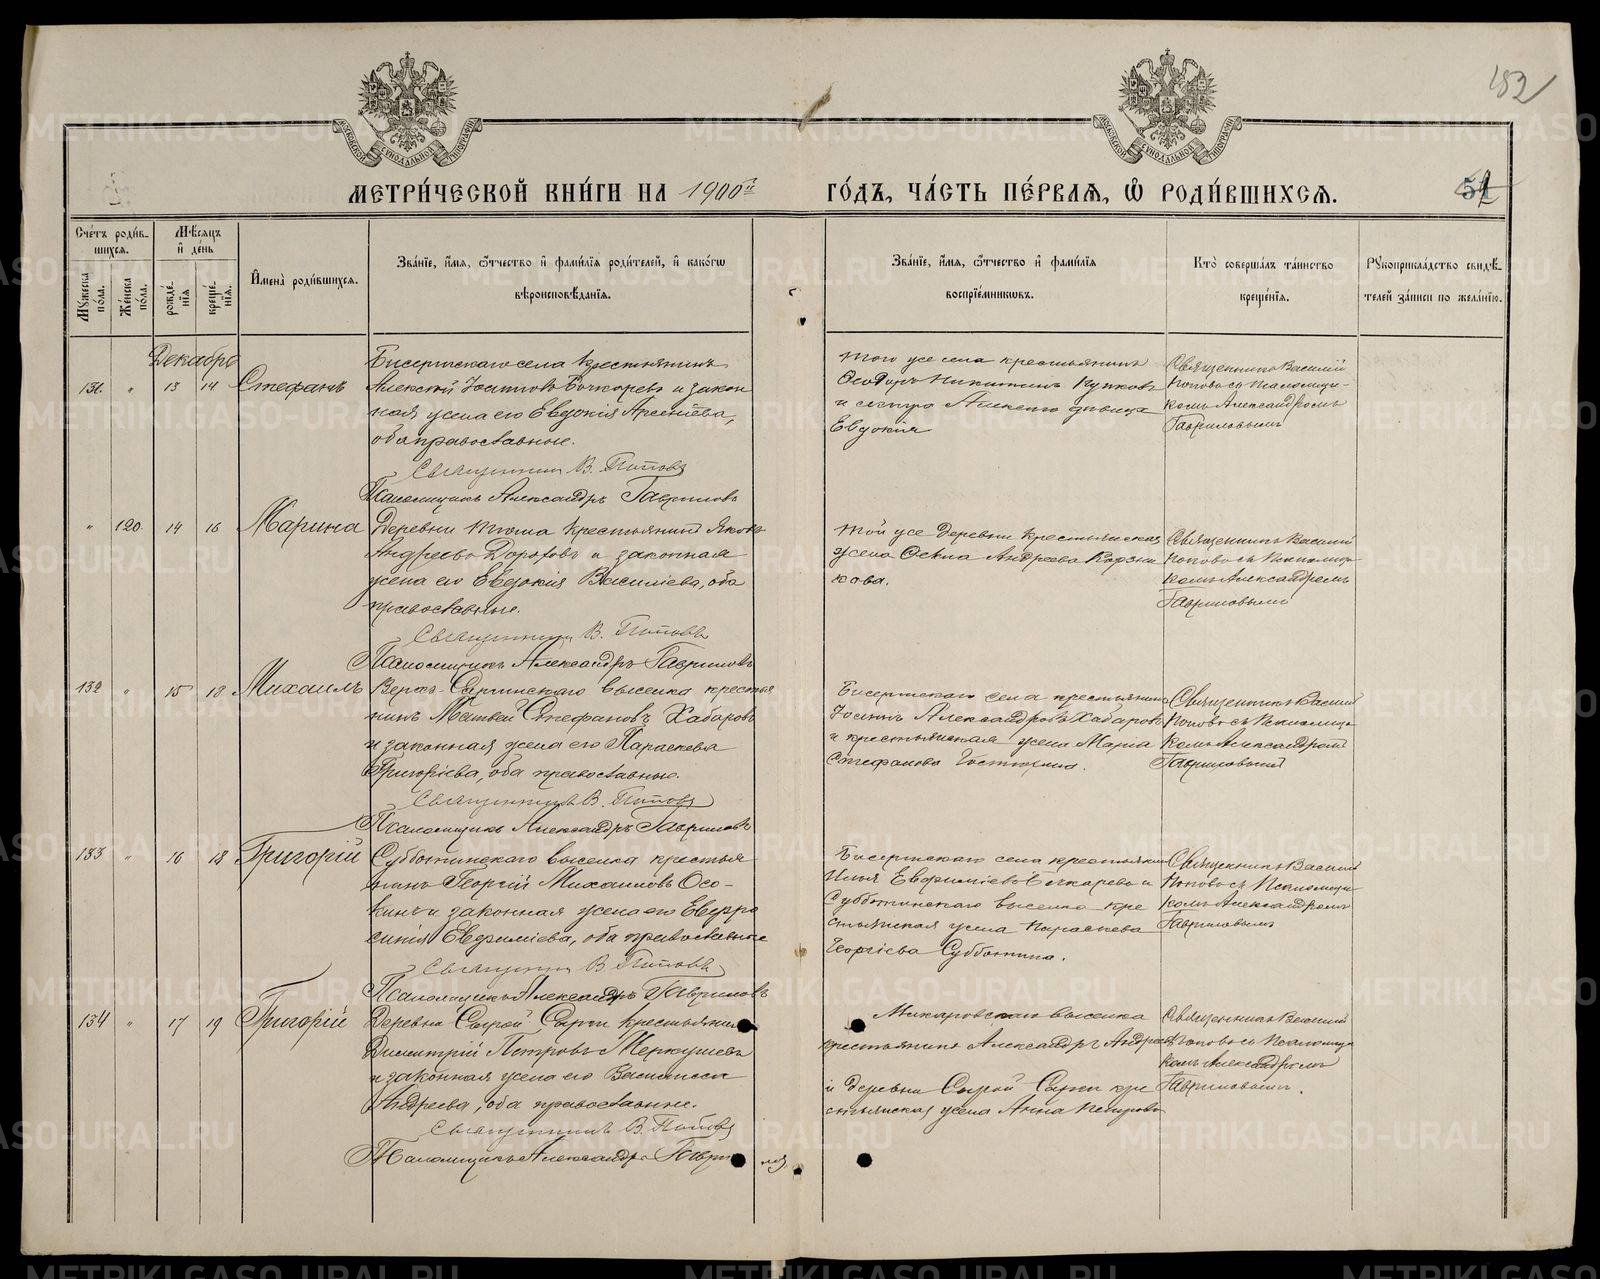 182
МЕТРИ́ЧЕСКОЙ КНИ́ГИ НА 1900й ГО́ДЪ, ЧА́СТЬ ПЕ́РВАЯ, Ѡ РОДИ́ВШИХСЯ.
Сче́тъ роди́в-
шихся.
Мѣ́сяцъ
и҆ де́нь
Мꙋ́жеска
по́ла.
Же́нска
по́ла.
рожде́-
нїя
креще́-
нїя.
И҆мена̀ роди́вшихся.
Зва́нїе, и҆́мя, ѻ҆́тчество и҆ фами́лїя роди́телей, и҆ како́гѡ
вѣроисповѣ́данїя.
Зва́нїе, и҆́мя, ѻ҆́тчество и҆ фами́лїя
воспрїе́мникѡвъ.
Кто̀ соверша́лъ та́инство
креще́нїя.
Рꙋкоприкла́дство свидѣ́-
телей за́писи по жела́нїю.
Декабрь
131. " 13 14 Стефанъ
Бисертскаго села крестьянинъ
Алексѣй Бочкаревъ и закон
ная жена его Евдокія Арсеніева,
оба православные.
Священникъ В. Поповъ
Псаломщикъ Александръ Гавриловъ
Того же села крестьянинъ
Ѳеодоръ Никитинъ
и сестра дѣвица
Евдокія
Священникъ Василій
Поповъ съ Псаломщи-
комъ Александромъ
Гавриловымъ
" 120. 14 16 Марина
Деревни крестьянинъ Яковъ
Андреевъ Дороховъ и законная
жена его Евдокія Василіева, оба
православные.
Священникъ В. Поповъ
Псаломщикъ Александръ Гавриловъ
Той же деревни крестьянская
жена Андреева
кова.
Священникъ Василій
Поповъ съ Псаломщи-
комъ Александромъ
Гавриловымъ
132 " 15 18 Михаилъ
Верхъ-Саринскаго выселка крестья
нинъ Матвей Стефановъ Хабаровъ
и законная жена его Параскева
Григоріева, оба православные.
Священникъ В. Поповъ
Псаломщикъ Александръ Гавриловъ
Бисертскаго села крестьянинъ
Іосифъ Александровъ Хабаровъ
и крестьянская жена Марія
Стефанова
Священникъ Василій
Поповъ съ Псаломщи-
комъ Александромъ
Гавриловымъ
133 " 16 18 Григорій
Субботинскаго выселка крестья
нинъ Георгій Михаиловъ Осо-
кинъ и законная жена его Евфро
синія Евфиміева, оба православные
Священникъ В. Поповъ
Псаломщикъ Александръ Гавриловъ
Бисертскаго села крестьянинъ
Илья Евфиміевъ Бочкаревъ и
Субботинскаго выселка кре
стьянская жена Параскева
Георгіева Субботина.
Священникъ Василій
Поповъ съ Псаломщи-
комъ Александромъ
Гавриловымъ
134 " 17 19 Григорій
Деревни Сырой Сарги крестьянинъ
Димитрій Петровъ Меркушевъ
и законная жена его Василисса
Андреева, оба православные.
Священникъ В. Поповъ
Псаломщикъ Александръ Гавриловъ
Макаровскаго выселка
крестьянинъ Александръ Андреевъ
и деревни Сырой Сарги кре
стьянская жена Анна Петрова
Священникъ Василій
Поповъ съ Псаломщи
комъ Александромъ
Гавриловымъ.
METRIKI.GASO-URAL.RU